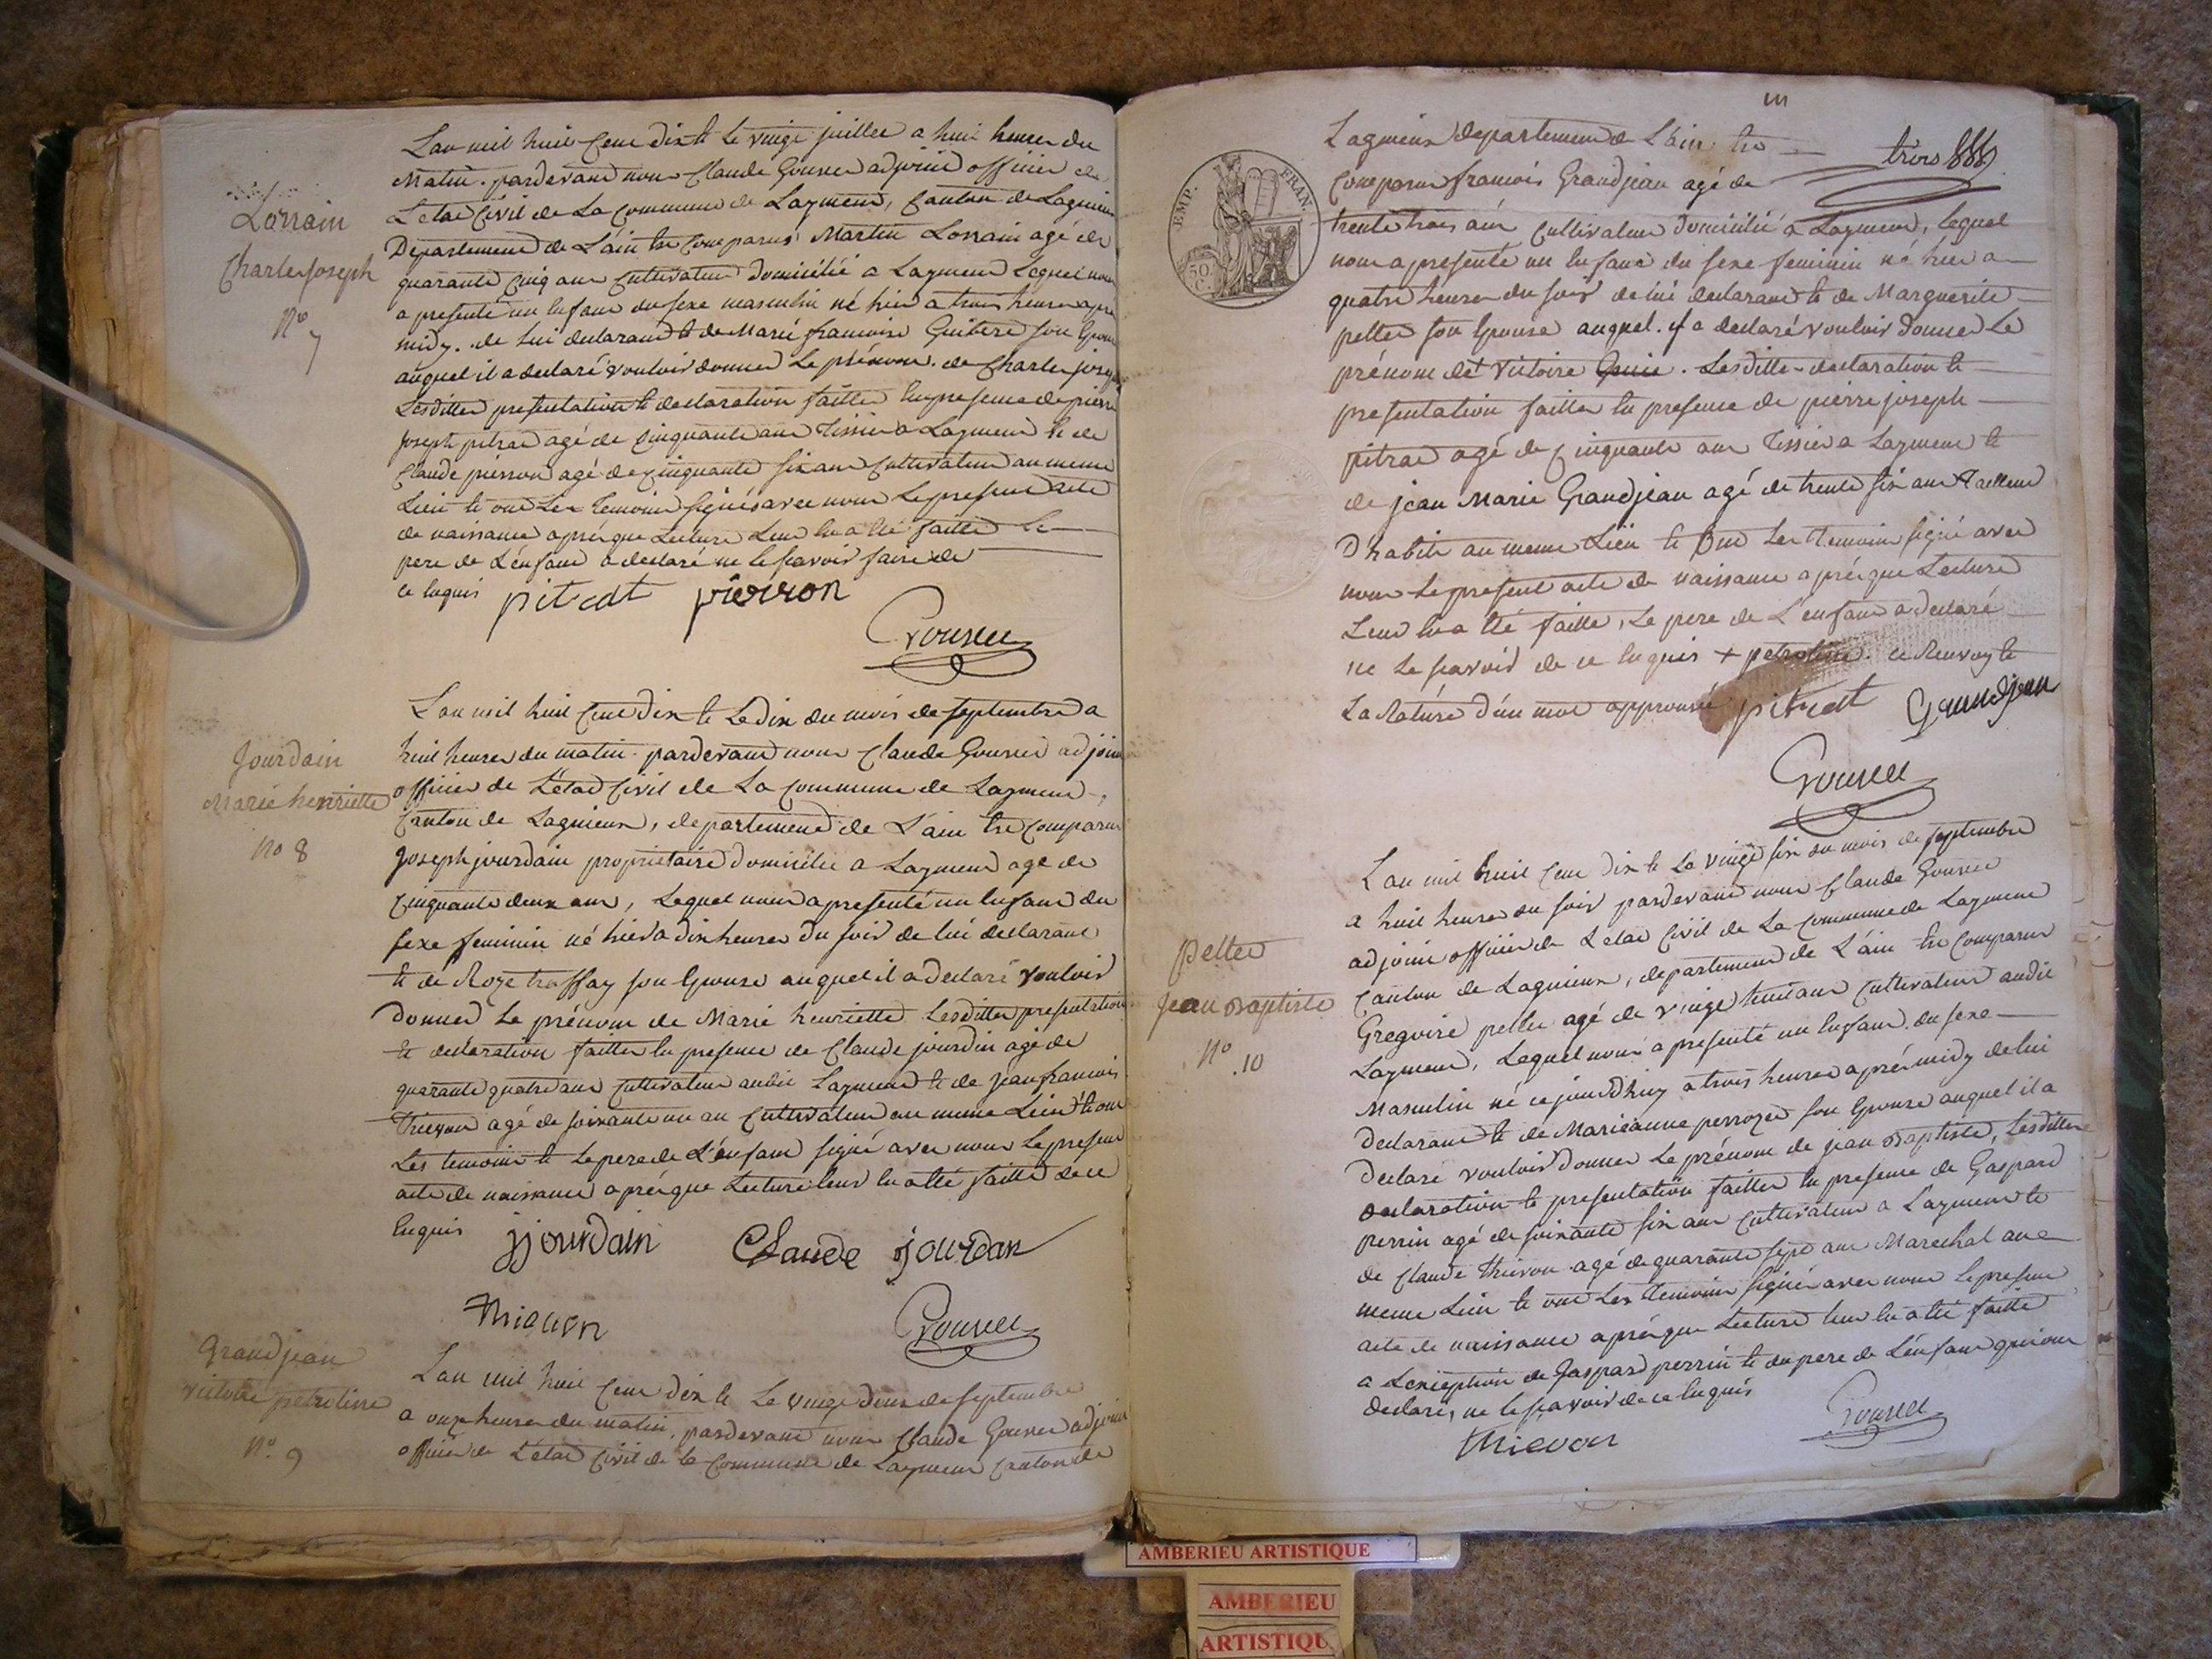 Lorrain
Charles joseph
N° 7
L'an mil huit Cent dix & Le vingt juillet a huit heures du
Matin. pardevant nous Claude Gourcu adjoint officier de
L'etat Civil de La Commune de Laymeux, Canton de Lagnieux
Departement de L'ain Est Comparus Martin Lorrain agé de
quarante Cinq ans Cultivateur domicilié a Laymeux Lequel nous
a presenté un Enfant du sexe masculin né hier a trois heures apres
midy. de Lui declarant & de Marie francoise son Epouse
auquel il a declaré vouloir donner Le prénom. de Charles joseph
Lesdittes presentation & declaration faittes En presence de pierre
joseph pitrat agé de Cinquante ans Tissier a Laymeux & de
Claude pierron agé de Cinquante six ans Cultivateur au meme
Lieu & ont Les Temoins signés avec nous Le present acte
de naissance aprés que Lecture Leur En a Eté faitte Le
pere de L'enfant a declaré ne le scavoir faire de
ce Enquis pitrat pierron
Jourdain
Marie henriette
No 8
L'an mil huit Cent dix & Le dix du mois de septembre a
huit heures du matin. pardevant nous Claude Gourcu adjoint
officier de L'etat Civil de La Commune de Laymeux,
Canton de Lagnieux, departement de L'ain Est Comparus
Joseph jourdain proprietaire domicilié a Laymeux agé de
Cinquante deux ans, Lequel nous a presenté un Enfant du
sexe feminin né hier a dix heures du soir de lui declarant
& de Roze traffay son Epouse auquel il a declaré vouloir
donner Le prénom de Marie henriette Lesdittes presentation
& declaration faittes En presence de Claude jourdin agé de
quarante quatre ans Cultivateur audit Laymeux & de jean francois
thievon agé de soixante un an Cultivateur au meme Lieu & ont
Les temoins & Le pere de L'enfant signé avec nous Le present
acte de naissance aprés que Lecture leur En a Eté faitte de ce
Enquis jjourdain Claude jourdan
thievon
Grandjean
victoire petroline
N° 9
L'an mil huit Cent dix & Le vingt deux de septembre
a onze heures du matin, pardevant nous Claude Gourcu adjoint
officier de L'etat Civil de la Commune de Laymeux Canton de
TIMP. FRAN.
50 C.
Lagnieux departement de L'ain Est
Comparus francois Grandjean agé de
trente trois ans Cultivateur domicilié a Laymeux, Lequel
nous a presenté un Enfant du sexe feminin né hier a
quatre heures du soir de lui declarant & de Marguerite
pelter son Epouse auquel. il a declaré vouloir donner Le
prénom de + victoire. Lesdittes declaration &
presentation faittes En presence de pierre joseph
pitrat agé de Cinquante ans Tissier a Laymeux &
de jean Marie Grandjean agé de trente six ans Tailleur
D'habits au meme Lieu & ont Les Temoins signé avec
nous Le present acte de naissance aprés que Lecture
Leur En a Eté faitte, Le pere de L'enfant a declaré
ne Le scavoir de ce Enquis + petroline. ce Renvoy &
La Rature d'un mot approuvé pitrat Grandjean
pelter
Jean Baptiste
N° 10
L'an mil huit Cent dix & Le vingt six du mois de septembre
a huit heures du soir pardevant nous Claude Gourcu
adjoint officier de L'etat Civil de La Commune de Laymeux
Canton de Lagnieux, departement de L'ain Est Comparus
Gregoire pelter agé de vingt huit ans Cultivateur audit
Laymeux, Lequel nous a presenté un Enfant du sexe
Masculin né ce jourdhuy a trois heures aprés midy de lui
Declarant & de Marieanne perrozet son Epouse auquel il a
Declaré vouloir Donner Le prénom de jean Baptiste, Lesdittes
Declaration & presentation faittes En presence de Gaspard
perrin agé de soixante six ans Cultivateur a Laymeux &
de Claude thievon agé de quarante sept ans Marechal au
meme Lieu & ont Les Temoins signés avec nous Le present
acte de naissance aprés que Lecture leur En a Eté faitte
a L'exception de Gaspard perrin & du pere de L'enfant qui ont
declaré, ne le scavoir de ce Enquis
thievon
AMBERIEU ARTISTIQUE
AMBERIEU
ARTISTIQU